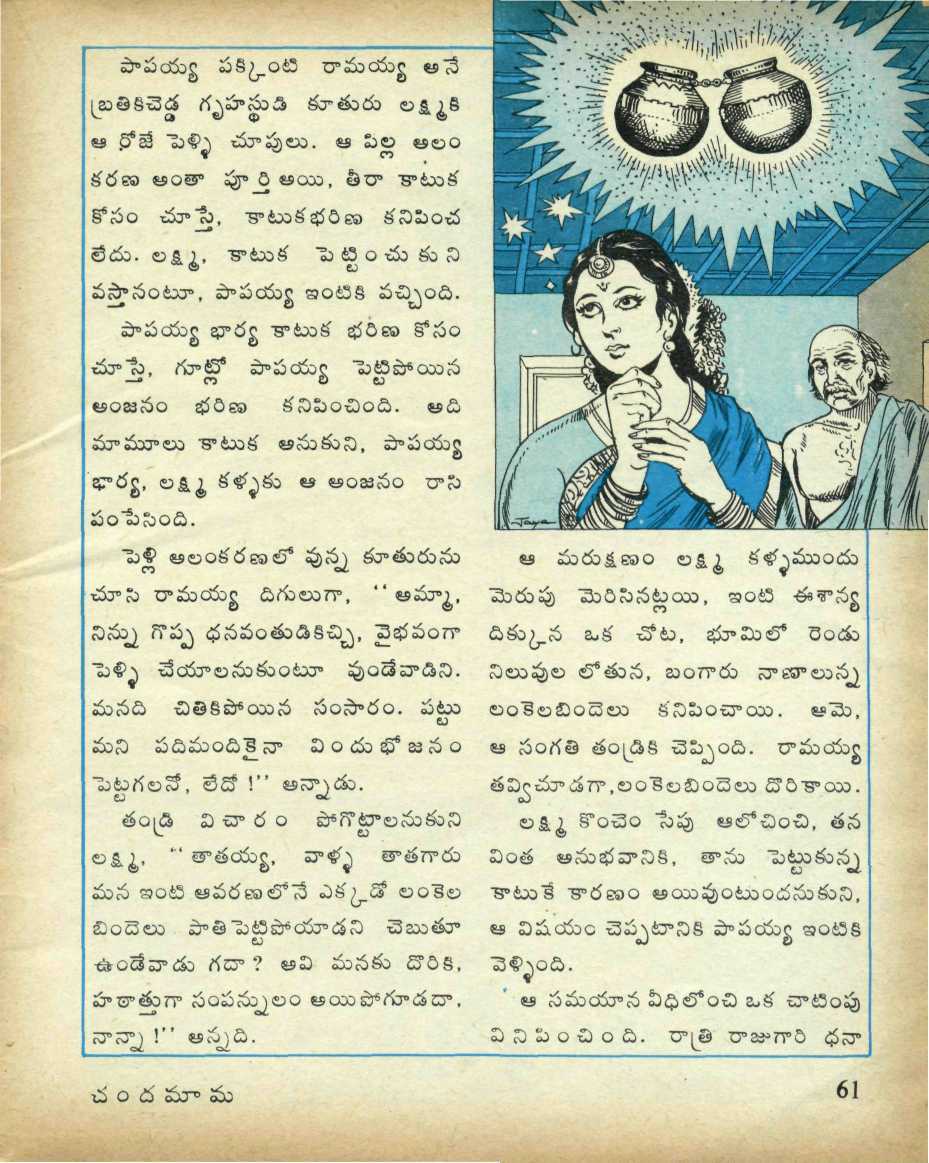 పాపయ్య పక్కింటి రామయ్య అనే
బ్రతికిచెడ్డ గృహస్థుడి కూతురు లక్ష్మికి
ఆ రోజే పెళ్ళి చూపులు. ఆ పిల్ల అలం
కరణ అంతా పూర్తి అయి, తీరా కాటుక
కోసం చూస్తే, కాటుకభరిణ కనిపించ
లేదు. లక్ష్మి, కాటుక పెట్టించుకుని
వస్తానంటూ, పాపయ్య ఇంటికి వచ్చింది.
పాపయ్య భార్య కాటుక భరిణ కోసం
చూస్తే, గూట్లో పాపయ్య పెట్టిపోయిన
అంజనం భరిణ కనిపించింది. అది
మామూలు కాటుక అనుకుని, పాపయ్య
భార్య, లక్ష్మి కళ్ళకు ఆ అంజనం రాసి
పంపేసింది.
పెళ్లి అలంకరణలో వున్న కూతురును
చూసి రామయ్య దిగులుగా, ‘‘అమ్మా,
నిన్ను గొప్ప ధనవంతుడికిచ్చి, వైభవంగా
పెళ్ళి చేయాలనుకుంటూ వుండేవాడిని.
మనది చితికిపోయిన సంసారం. పట్టు
మని పదిమందికైనా విందుభోజనం
పెట్టగలనో, లేదో !’’ అన్నాడు.
తండ్రి విచారం పోగొట్టాలనుకుని
లక్ష్మి, ‘‘తాతయ్య, వాళ్ళ తాతగారు
మన ఇంటి ఆవరణలోనే ఎక్కడో లంకెల
బిందెలు పాతిపెట్టిపోయాడని చెబుతూ
ఉండేవాడు గదా ? అవి మనకు దొరికి,
హఠాత్తుగా సంపన్నులం అయిపోగూడదా,
నాన్నా !’’ అన్నది.
Jaya
ఆ మరుక్షణం లక్ష్మి కళ్ళముందు
మెరుపు మెరిసినట్లయి, ఇంటి ఈశాన్య
దిక్కున ఒక చోట, భూమిలో రెండు
నిలువుల లోతున, బంగారు నాణాలున్న
లంకెలబిందెలు కనిపించాయి. ఆమె,
ఆ సంగతి తండ్రికి చెప్పింది. రామయ్య
తవ్విచూడగా,లంకెలబిందెలు దొరికాయి.
లక్ష్మి కొంచెం సేపు ఆలోచించి, తన
వింత అనుభవానికి, తాను పెట్టుకున్న
కాటుకే కారణం అయివుంటుందనుకుని,
ఆ విషయం చెప్పటానికి పాపయ్య ఇంటికి
వెళ్ళింది.
ఆ సమయాన వీధిలోంచి ఒక చాటింపు
వినిపించింది. రాత్రి రాజుగారి ధనా
చందమామ
61